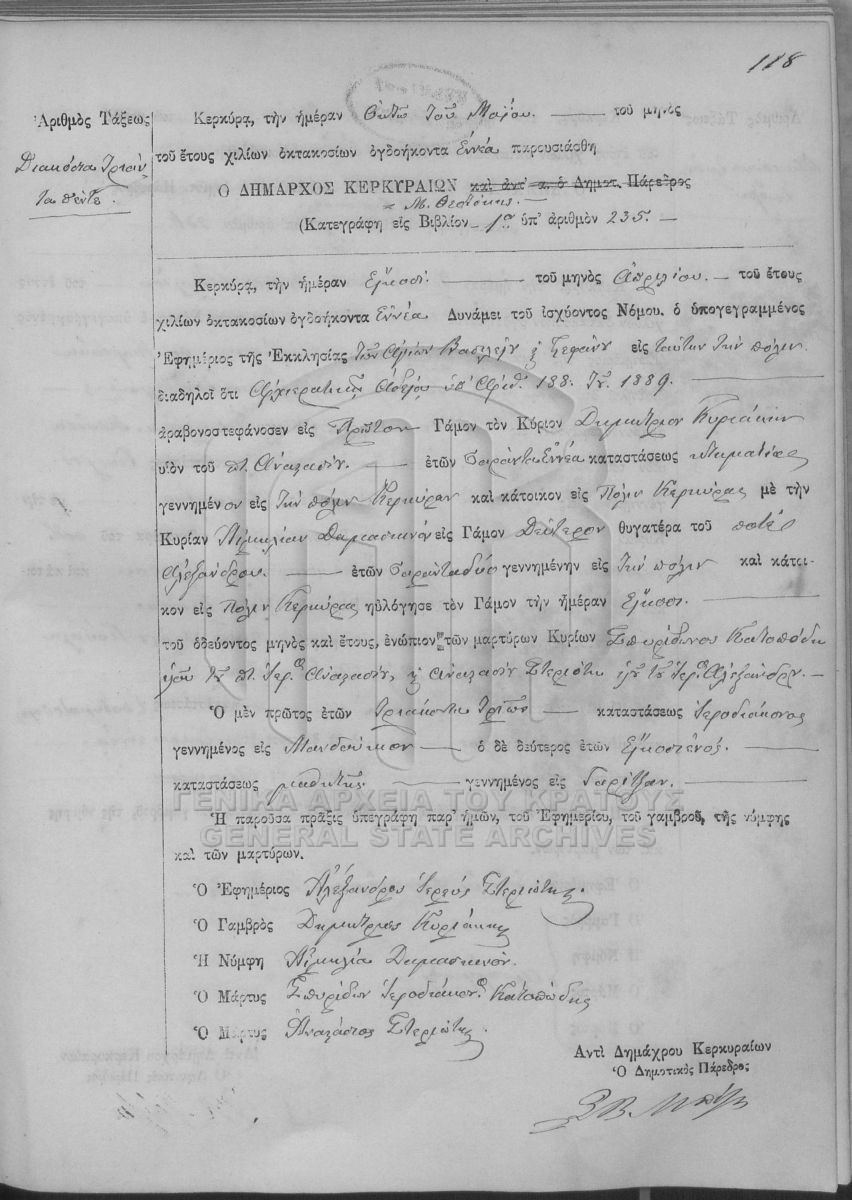 118
Ἀριθμὸς Τάξεως
Διακόσια τριάν
τα πέντε.
Κερκύρᾳ, τὴν ἡμέραν Ὀκτὼ τοῦ Μαΐου. — τοῦ μηνὸς
τοῦ ἔτους χιλίων ὀκτακοσίων ὀγδοήκοντα Ἐννέα παρουσιάσθη
Ο ΔΗΜΑΡΧΟΣ ΚΕΡΚΥΡΑΙΩΝ καὶ ἀντ' α. ὁ Δημοτ. Πάρεδρος
Μ. Θεοτόκης. —
(Κατεγράφη εἰς Βιβλίον 1ον ὑπ' ἀριθμὸν 235. —
Κερκύρᾳ, τὴν ἡμέραν Εἴκοσι. — τοῦ μηνὸς Ἀπριλίου. — τοῦ ἔτους
χιλίων ὀκτακοσίων ὀγδοήκοντα Ἐννέα Δυνάμει τοῦ ἰσχύοντος Νόμου. ὁ ὑπογεγραμμένος
Ἐφημέριος τῆς Ἐκκλησίας τῶν Ἁγίων Βασιλείου & Στεφάνου εἰς ταύτην τὴν πόλιν
διαδηλοῖ ὅτι Ἀρχιερατικῇ Ἀδείᾳ ὑπ' Ἀριθ. 188. τοῦ 1889. —
ἀραβονοστεφάνοσεν εἰς Πρῶτον Γάμον τὸν Κύριον Δημήτριον Κυριάκην
υἱὸν τοῦ πτ. Ἀναστασίου. — ἐτῶν Σαράντα Ἐννέα καταστάσεως κτηματίας
γεννημένον εἰς τὴν πόλιν Κερκύραν καὶ κάτοικον εἰς Πόλιν Κερκύρας μὲ τὴν
Κυρίαν Αἰμιλίαν Δαμασκηνὸν εἰς Γάμον Δεύτερον θυγατέρα τοῦ ποτὲ
Ἀλεξάνδρου. — ἐτῶν Σαράντα δύο γεννημένην εἰς τὴν πόλιν καὶ κάτοι-
κον εἰς Πόλιν Κερκύρας ηὐλόγησε τὸν Γάμον τὴν ἡμέραν Εἴκοσι. —
τοῦ ὁδεύοντος μηνὸς καὶ ἔτους, ἐνώπιον τῶν μαρτύρων Κυρίων Σπυρίδωνος Κατοπόδη
υἱοῦ τοῦ πτ. Ἱερ. Ἀναστασίου, & Ἀναστασίου Στεριώτη υἱοῦ τοῦ Ἱερ. Ἀλεξάνδρου. —
Ὁ μὲν πρῶτος ἐτῶν Τριάκοντα Τριῶν — καταστάσεως Ἱεροδιάκονος
γεννημένος εἰς Μανδούκιον — ὁ δὲ δεύτερος ἐτῶν Εἴκοσι ἑνός. —
καταστάσεως μαθητής — γεννημένος εἰς Γαρίτζαν. —
Ἡ παροῦσα πρᾶξις ὑπεγράφη παρ' ἡμῶν, τοῦ Ἐφημερίου, τοῦ γαμβροῦ, τῆς νύμφης
καὶ τῶν μαρτύρων.
ΓΕΝΙΚΑ ΑΡΧΕΙΑ ΤΟΥ ΚΡΑΤΟΥΣ
GENERAL STATE ARCHIVES
Ὁ Ἐφημέριος Ἀλέξανδρος Ἱερεὺς Στεριώτης.
Ὁ Γαμβρὸς Δημήτριος Κυριάκης
Ἡ Νύμφη Αἰμιλία Δαμασκηνὸν.
Ὁ Μάρτυς Σπυρίδων Ἱεροδιάκονος Κατοπόδης
Ὁ Μάρτυς Ἀναστάσιος Στεριώτης.
Αντὶ Δημάχρου Κερκυραίων
Ὁ Δημοτικὸς Πάρεδρος